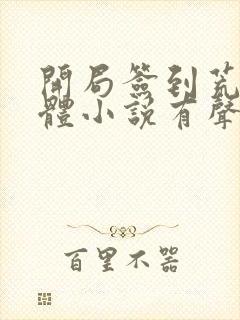 開局簽到荒
體小說有聲
百里不器